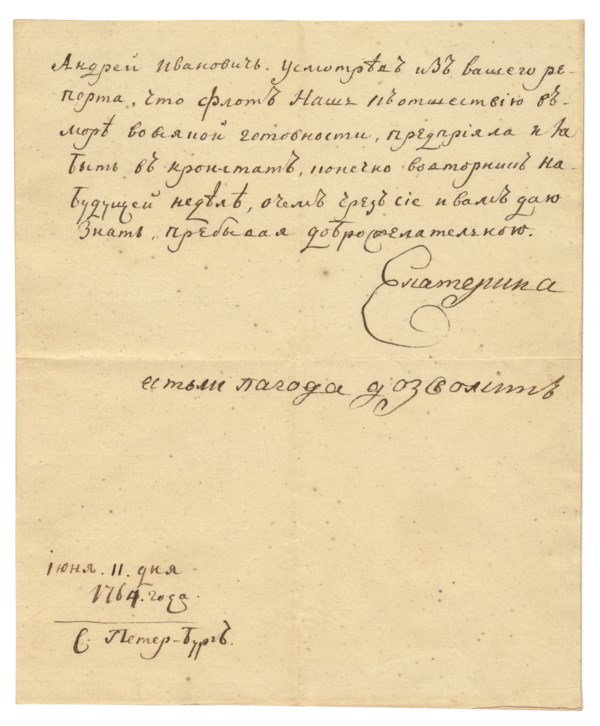 Андрей Ивановичь. Усмотрѣвъ изъ вашего ре-
порта, что флотъ Нашъ къ отшествію въ
морѣ во всякой готовности, предпріяла и Я
быть въ кронстатъ, конечно во вторникъ на
будущей недѣлѣ, о чемъ чрезъ сіе и вамъ даю
знать, пребывая доброжелательною.
Екатерина
естьли пагода дозволитъ
Іюня. 11. дня
1764. года.
С. Петер-бургъ.